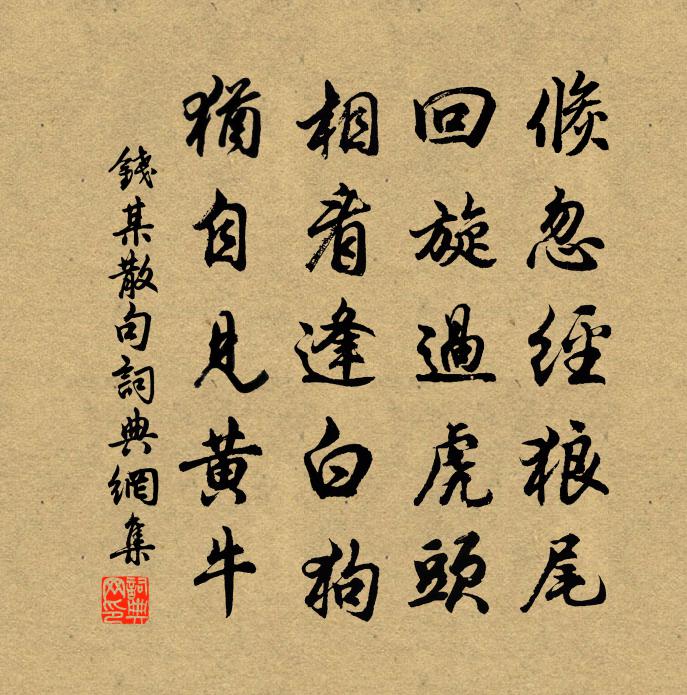 倐忽經狼尾
回旋過虎頭
相看逢白狗
猶自見黃牛
錢某散句詞典網集
詞典網印